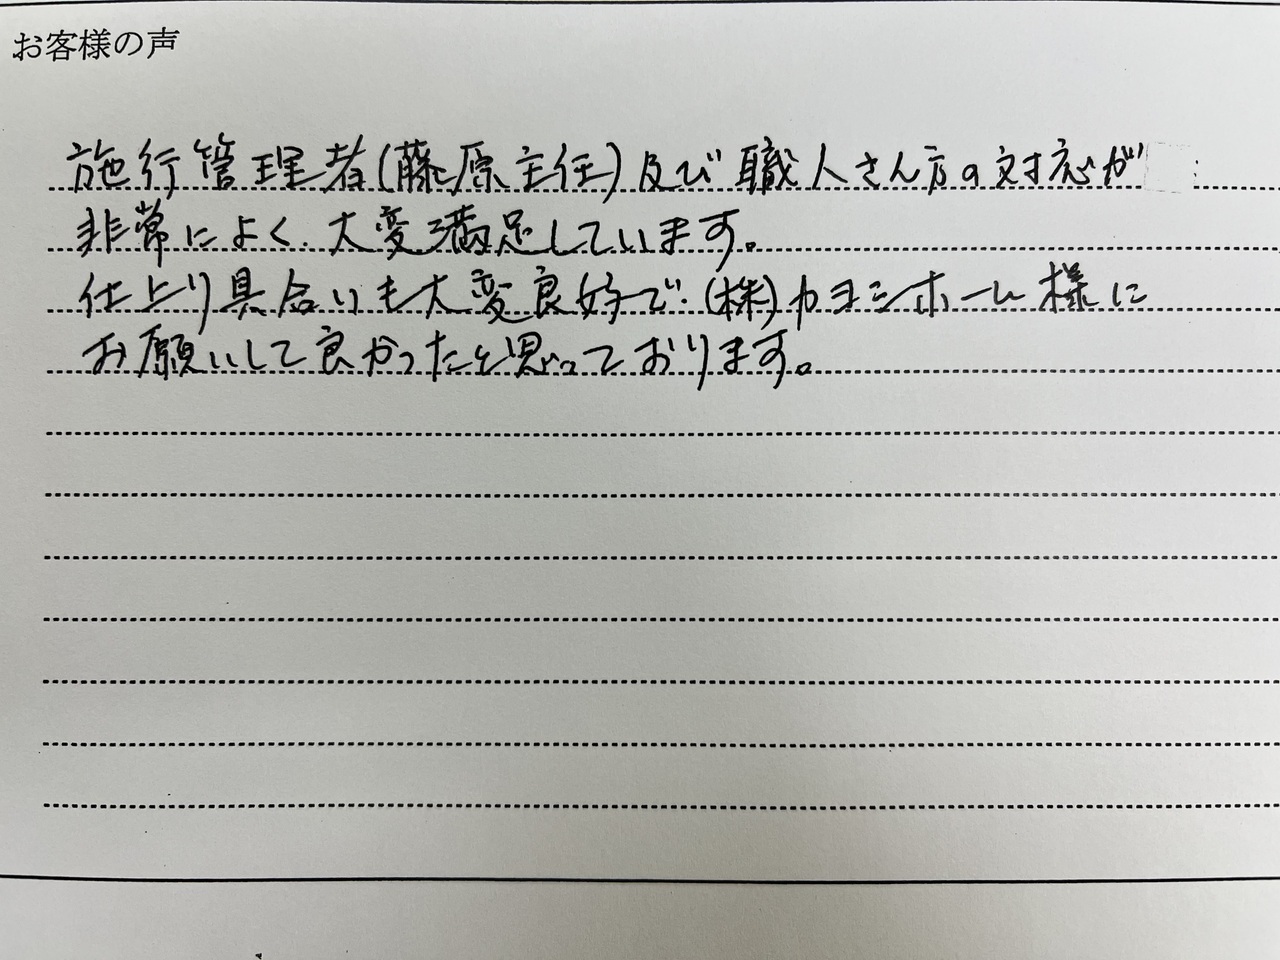 お客様の声
施行管理者(藤原主任)及び職人さん方の対応が
非常によく、大変満足しています。
仕上り具合いも大変良好で、(株)カヨシホーム様に
お願いして良かったと思っております。